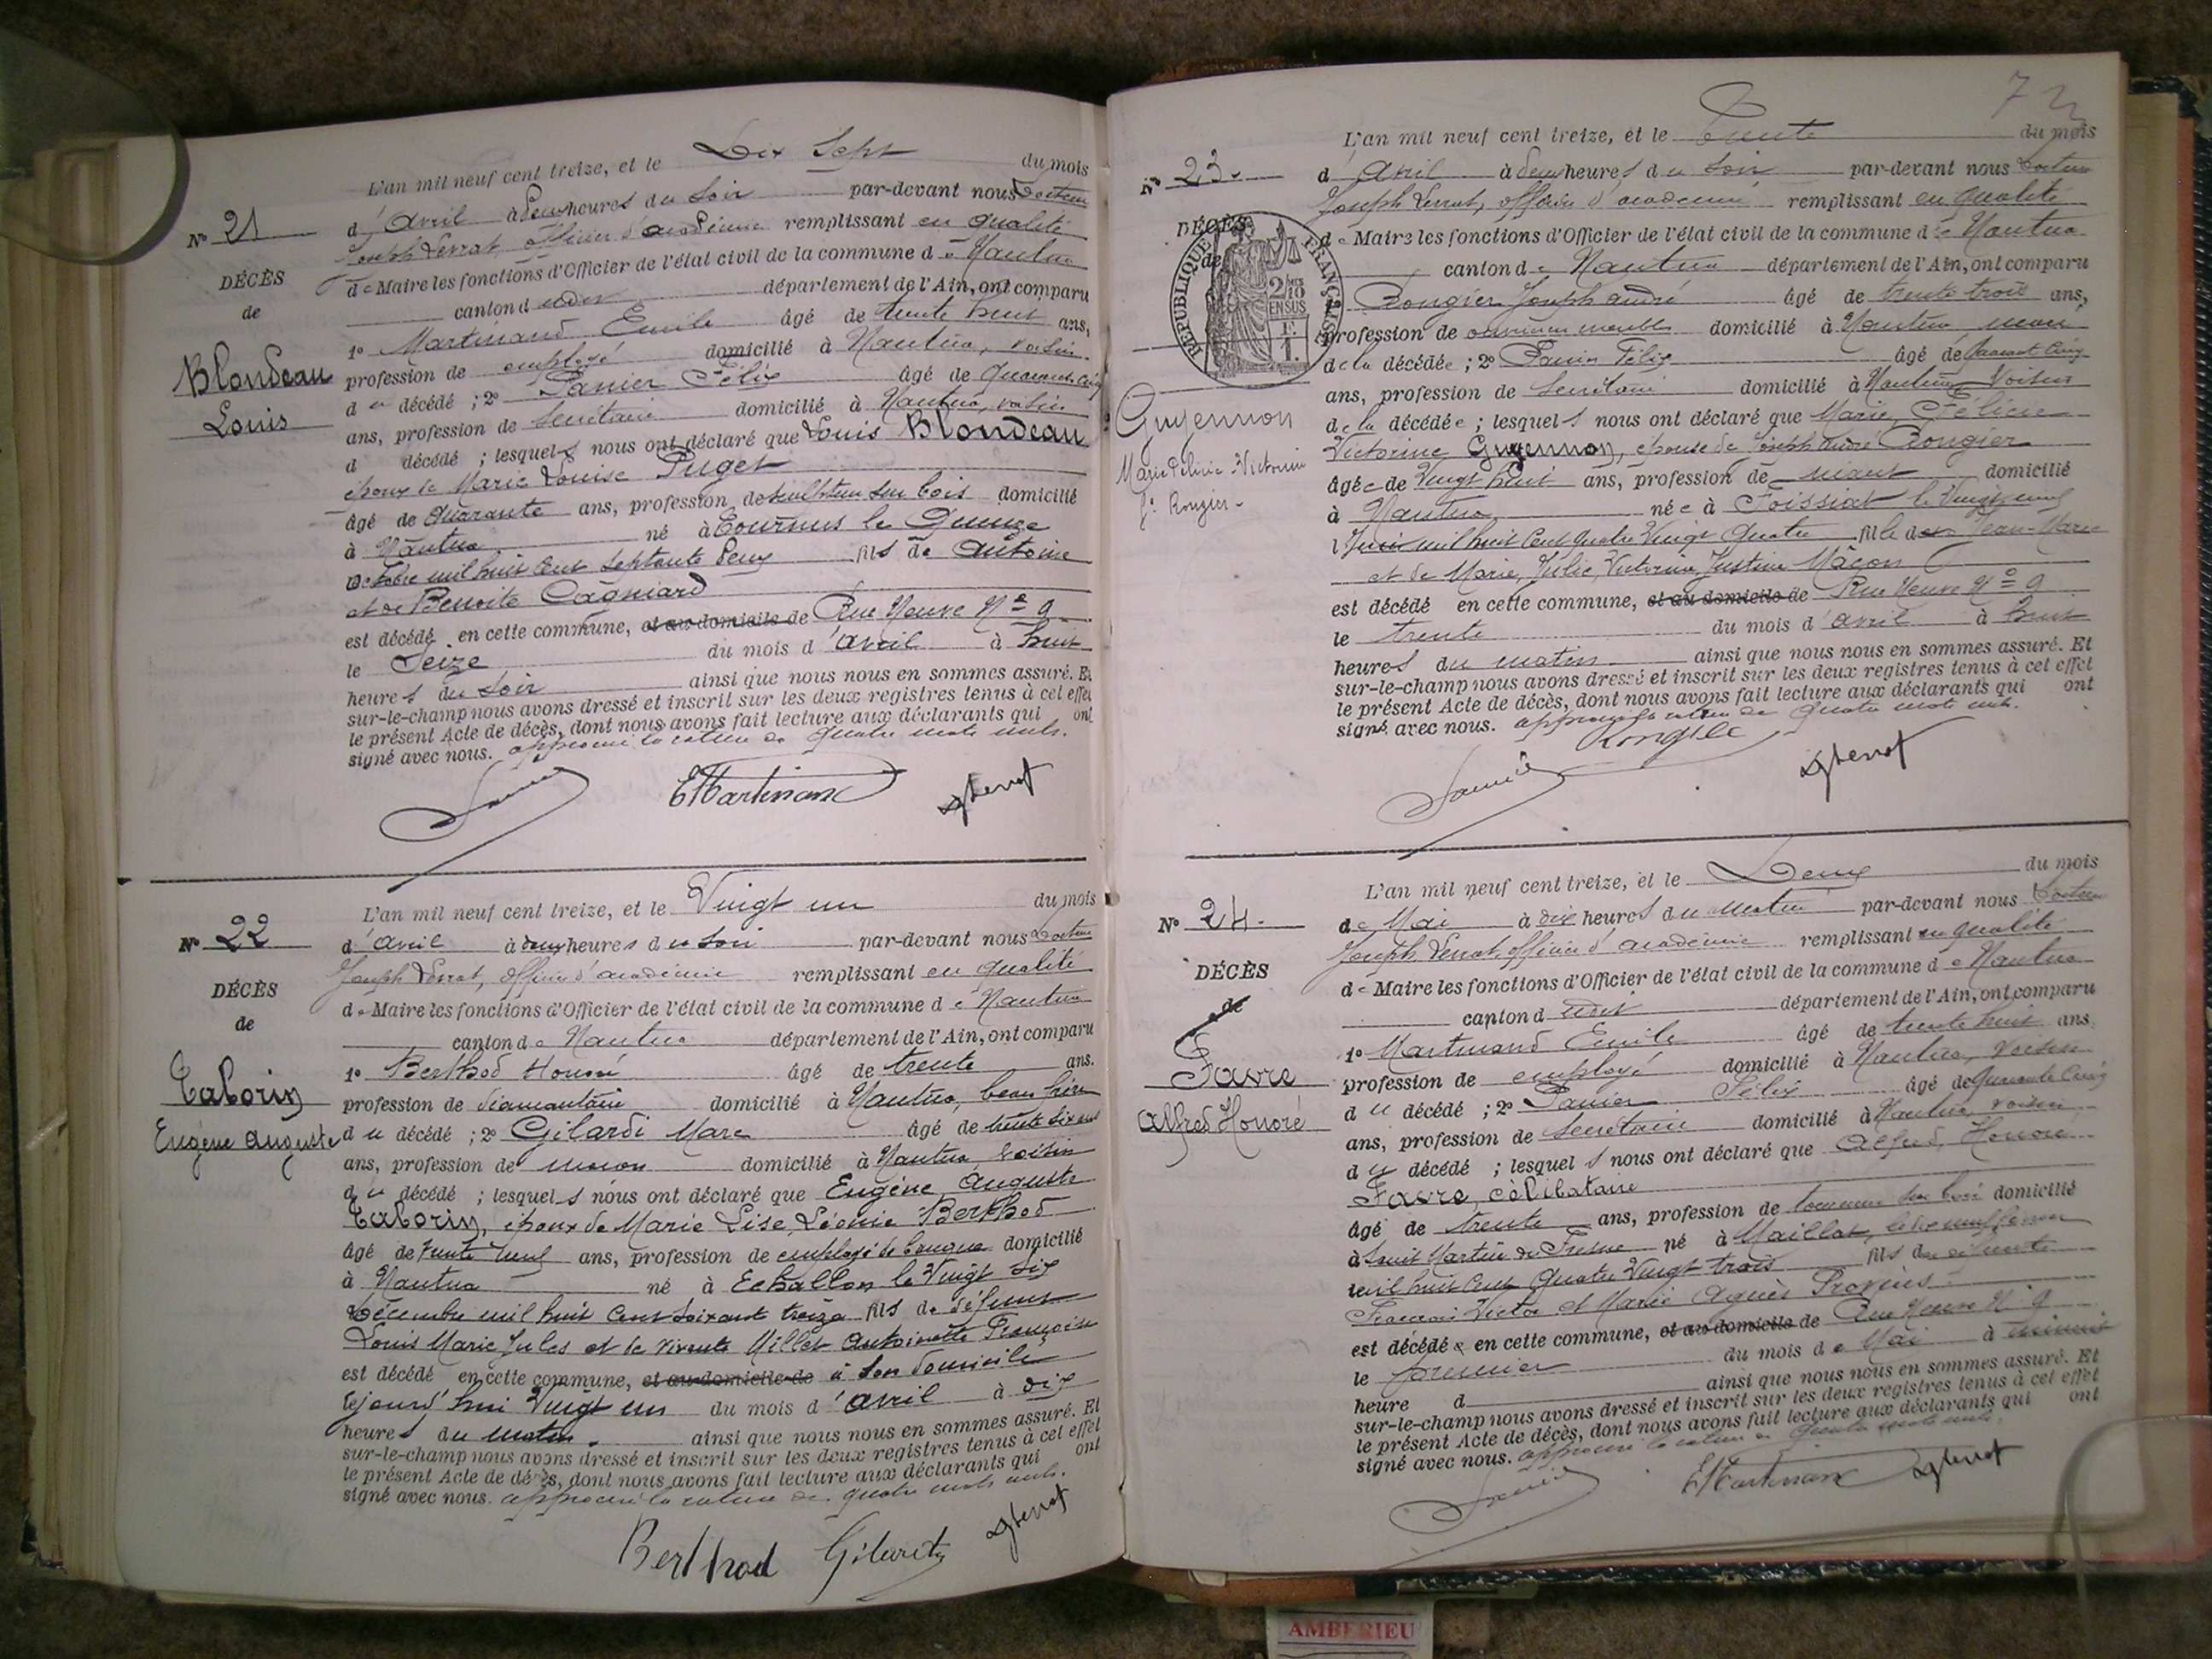 L'an mil neuf cent treize, et le Dix Sept du mois
d'avril à deux heures du soir par-devant nous Docteur
Joseph Verrat, officier d'académie remplissant en qualité
de Maire les fonctions d'Officier de l'état civil de la commune de Nantua
canton dudit département de l'Ain, ont comparu
1º Martinand Emile âgé de trente huit ans,
profession de employé domicilié à Nantua, voisin
du décédé ; 2º Panier Félix âgé de quarante cinq
ans, profession de secrétaire domicilié à Nantua, voisin
d décédé ; lesquels nous ont déclaré que Louis Blondeau
époux de Marie Louise Puget
âgé de quarante ans, profession de sculpteur sur bois domicilié
à Nantua né à Tournus le Quinze
octobre mil huit cent septante deux fils de Antoine
et de Benoite Cagniard
est décédé en cette commune, et au domicile de Rue Neuve Nº 9
le Seize du mois d'avril à huit
heures du soir ainsi que nous nous en sommes assuré. Et
sur-le-champ nous avons dressé et inscrit sur les deux registres tenus à cet effet
le présent Acte de décès, dont nous avons fait lecture aux déclarants qui ont
signé avec nous. approuvé la rature de quatre mots nuls.
EMartinand
Nº 21
DÉCÈS
de
Blondeau
Louis
L'an mil neuf cent treize, et le Vingt un du mois
d'avril à deux heures du soir par-devant nous Docteur
Joseph Verrat, officier d'académie remplissant en qualité
de Maire les fonctions d'Officier de l'état civil de la commune de Nantua
canton de Nantua département de l'Ain, ont comparu
1º Berthod Honoré âgé de trente ans.
profession de diamantaire domicilié à Nantua, beau frère
du décédé ; 2º Gilardi Marc âgé de trente six ans
ans, profession de maçon domicilié à Nantua voisin
du décédé ; lesquels nous ont déclaré que Eugène Auguste
Taborin, époux de Marie Lise Léonie Berthod
âgé de trente neuf ans, profession de employé de banque domicilié
à Nantua né à Echallon le Vingt six
décembre mil huit cent soixante treize fils de défunt
Louis Marie Jules et de vivante Millet Antoinette Françoise
est décédé en cette commune, et au domicile de à son domicile
le jourd'hui Vingt un du mois d'avril à dix
heures du matin. ainsi que nous nous en sommes assuré. Et
sur-le-champ nous avons dressé et inscrit sur les deux registres tenus à cet effet
le présent Acte de décès, dont nous avons fait lecture aux déclarants qui ont
signé avec nous. approuvé la rature de quatre mots nuls.
Berthod
Nº 22
DÉCÈS
de
Taborin
Eugène Auguste
72
L'an mil neuf cent treize, et le Trente du mois
d'Avril à deux heures du soir par-devant nous Docteur
Joseph Verrat, officier d'académie remplissant en qualité
de Maire les fonctions d'Officier de l'état civil de la commune de Nantua
canton de Nantua département de l'Ain, ont comparu
Rougier Joseph André âgé de trente trois ans,
profession de ouvrier en meubles domicilié à Nantua mari
de la décédée ; 2º Panier Félix âgé de quarante cinq
ans, profession de secrétaire domicilié à Nantua voisin
de la décédée ; lesquels nous ont déclaré que Marie Félicie
Victorine Guyennon, épouse de Joseph André Rougier
âgée de vingt huit ans, profession de domicilié
à Nantua née à Foissiat le vingt neuf
Juin mil huit cent quatre vingt quatre fille de Jean-Marie
et de Marie, Julie, Victorine, Justine Mâcon
est décédé en cette commune, et au domicile de Rue Neuve Nº 9
le trente du mois d'avril à huit
heures du matin ainsi que nous nous en sommes assuré. Et
sur-le-champ nous avons dressé et inscrit sur les deux registres tenus à cet effet
le présent Acte de décès, dont nous avons fait lecture aux déclarants qui ont
signé avec nous. approuvé la rature de quatre mots nuls.
Nº 23.
DÉCÈS
de
RÉPUBLIQUE FRANÇAISE
2/10
EN SUS
F.
1.
Guyennon
Marie Félicie Victorine
fe Rougier
L'an mil neuf cent treize, et le Deux du mois
de Mai à dix heures du matin par-devant nous Docteur
Joseph Verrat, officier d'académie remplissant en qualité
de Maire les fonctions d'Officier de l'état civil de la commune de Nantua
canton dudit département de l'Ain, ont comparu
1º Martinand Emile âgé de trente huit ans
profession de employé domicilié à Nantua, voisin
du décédé ; 2º Panier Félix âgé de quarante cinq
ans, profession de secrétaire domicilié à Nantua voisin
du décédé ; lesquels nous ont déclaré que Alfred, Honoré
Favre, célibataire
âgé de trente ans, profession de tourneur sur bois domicilié
à Saint Martin du Fresne né à Maillat,
mil huit cent quatre vingt trois fils de
François Victor et Marie Agnès
est décédé en cette commune, et au domicile de Rue Neuve Nº 9
le premier du mois de Mai à minuit
heure d ainsi que nous nous en sommes assuré. Et
sur-le-champ nous avons dressé et inscrit sur les deux registres tenus à cet effet
le présent Acte de décès, dont nous avons fait lecture aux déclarants qui ont
signé avec nous. approuvé la rature de quatre mots nuls.
EMartinand
Nº 24.
DÉCÈS
de
Favre
Alfred Honoré
AMBERIEU